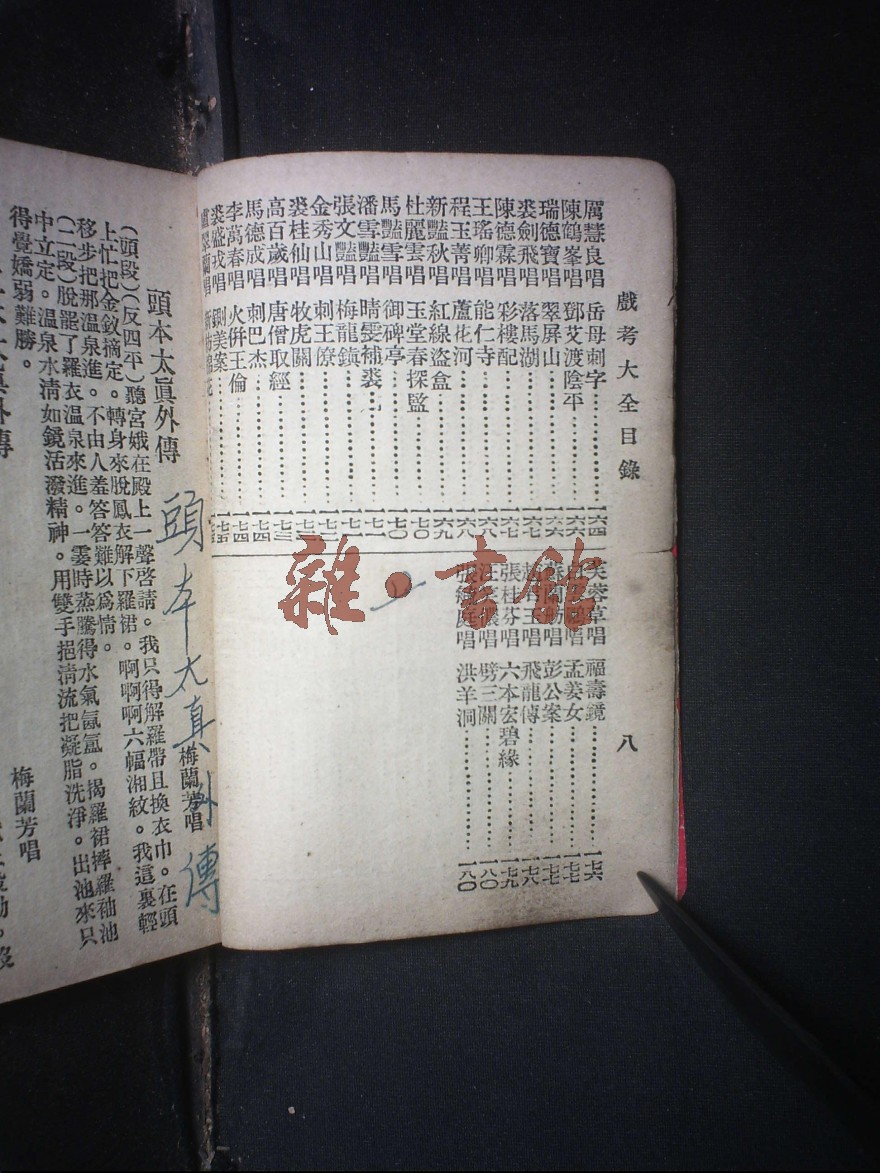 戲考大全目錄
八
厲慧良唱 岳母刺字 一六四
陳鶴峯唱 鄧艾渡陰平 一六六
瑞德寶唱 翠屏山 一六六
裘劍飛唱 落馬湖 一六七
陳德霖唱 彩樓配 一六七
王瑤卿唱 能仁寺 一六八
程玉菁唱 蘆花河 一六八
新豔秋唱 紅線盜盒 一六九
杜麗雲唱 玉堂春探監 一七〇
馬豔雪唱 御碑亭 一七〇
潘雪豔唱 晴雯補裘 一七一
張文豔唱 梅龍鎮 一七一
金秀山唱 刺王僚 一七二
裘桂仙唱 牧虎關
高百歲唱 唐僧取經 一七三
馬德成唱 刺巴杰 一七四
李萬春唱 火併王倫 一七四
裘盛戎唱 鍘美案 一七五
盧翠蘭唱
芙蓉草唱 福壽鏡 一七六
唱 孟姜女 一七七
唱 彭公案 一七七
玉唱 飛龍傳 一七八
張桂芬唱 六本宏碧緣 一七九
唱 劈三關 一八〇
唱 洪羊洞 一八〇
雜·書館
頭本太真外傳
頭本太眞外傳
梅蘭芳唱
(頭段)(反四平)聽宮娥在殿上一聲啓請。我只得解羅帶且換衣巾。在頭
上忙把金釵摘定。轉身來脫鳳衣解下羅裙。啊啊啊六幅湘紋。我這裏輕
移步把那溫泉進。不由人羞答答難以爲情。
(二段)脫罷了羅衣溫泉來進。一霎時蒸騰得水氣氤氳。揭羅裙摔羅袖池
中立定。溫泉水清如鏡活潑精神。用雙手挹清流把凝脂洗淨。出池來只
得覺嬌弱難勝。
梅蘭芳唱